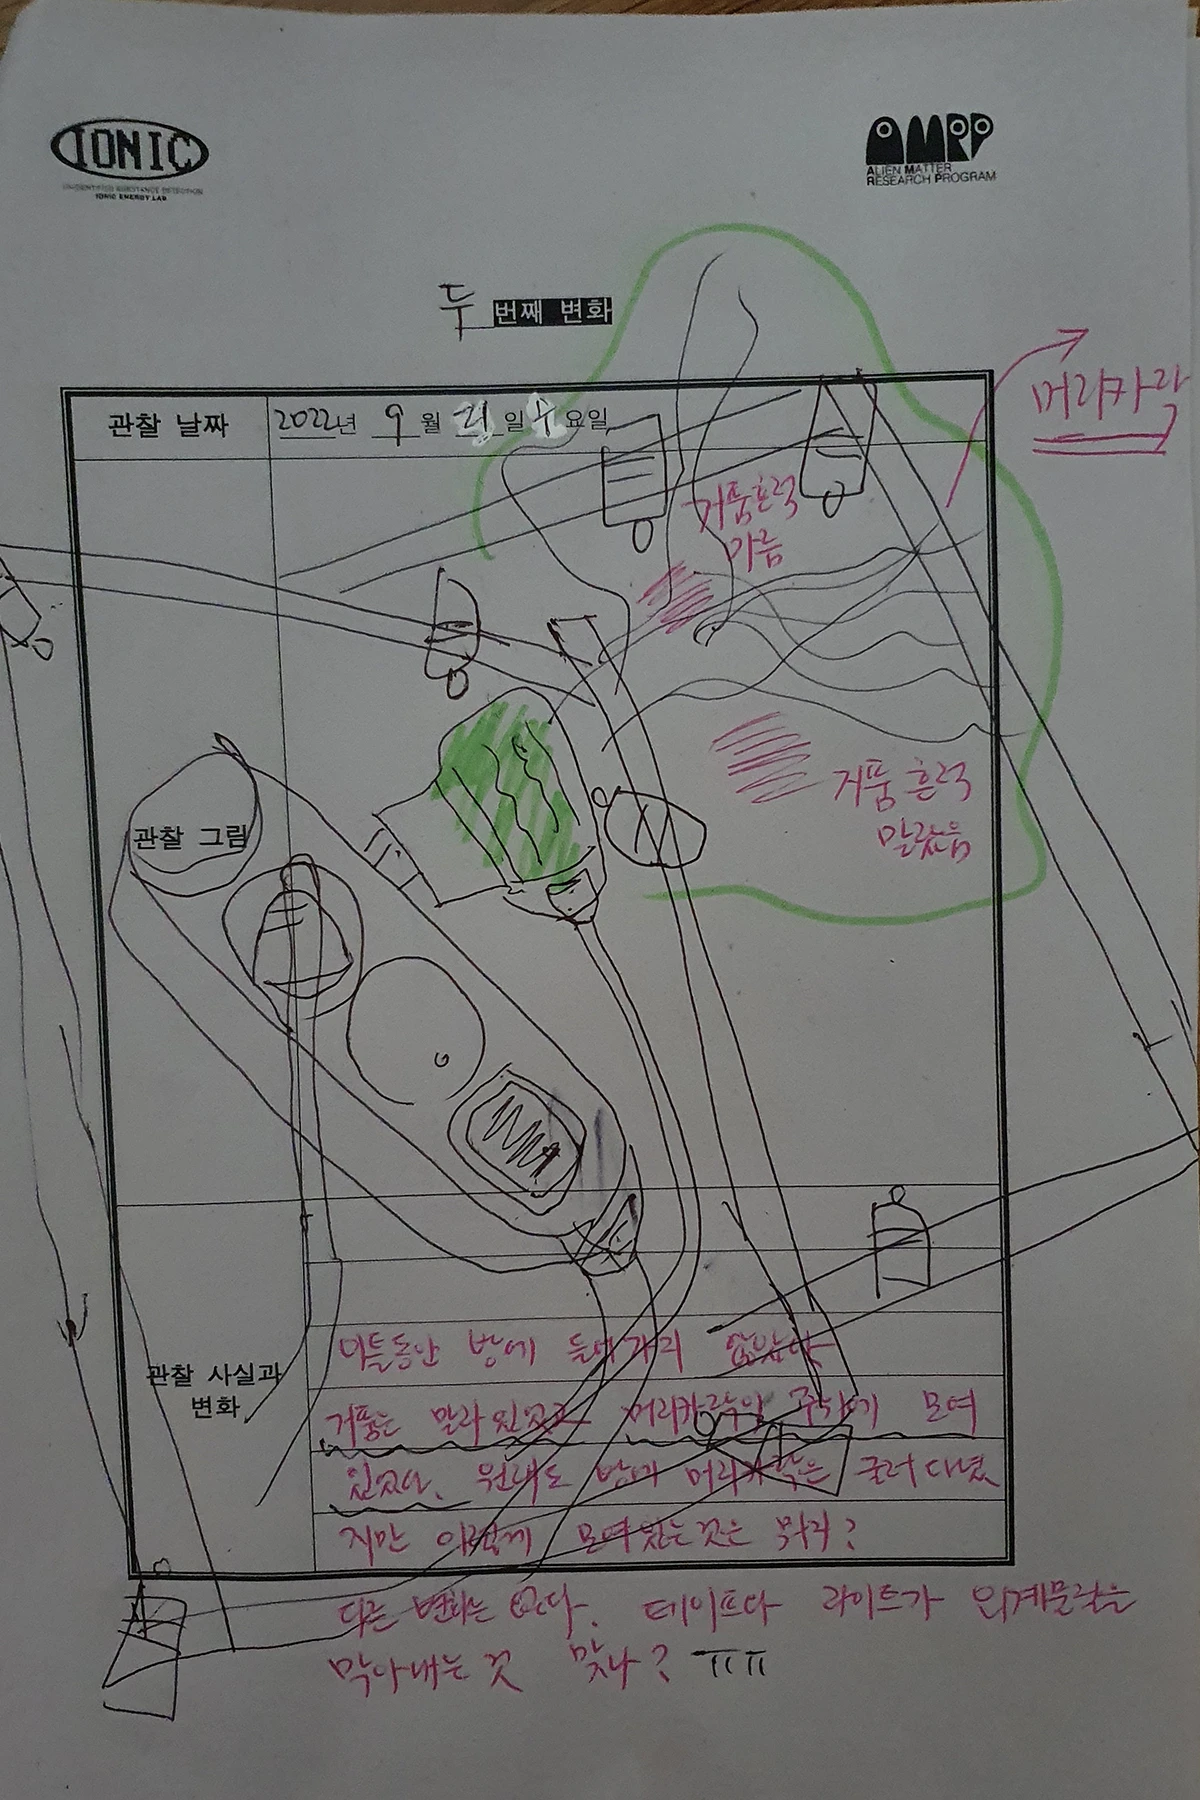 IONIC
UNIDENTIFIED SUBSTANCE DETECTION
IONIC ENERGY LAB
AMRP
ALIEN MATTER
RESEARCH PROGRAM
두 번째 변화
관찰 날짜
2022년 9월 21일 수요일
머리카락
거품흔적
마름
거품 흔적
말랐음
관찰 그림
관찰 사실과
변화
이틀동안 방에 들어가지 않았다
거품은 말라 있었고 머리카락이 주위에 모여
있었다. 원래도 방에 머리카락은 굴러 다녔
지만 이렇게 모여 있는 것은 뭐지?
다른 변화는 없다. 테이프다 라이트가 외계물질을
막아내는 것 맞나? ㅠㅠ